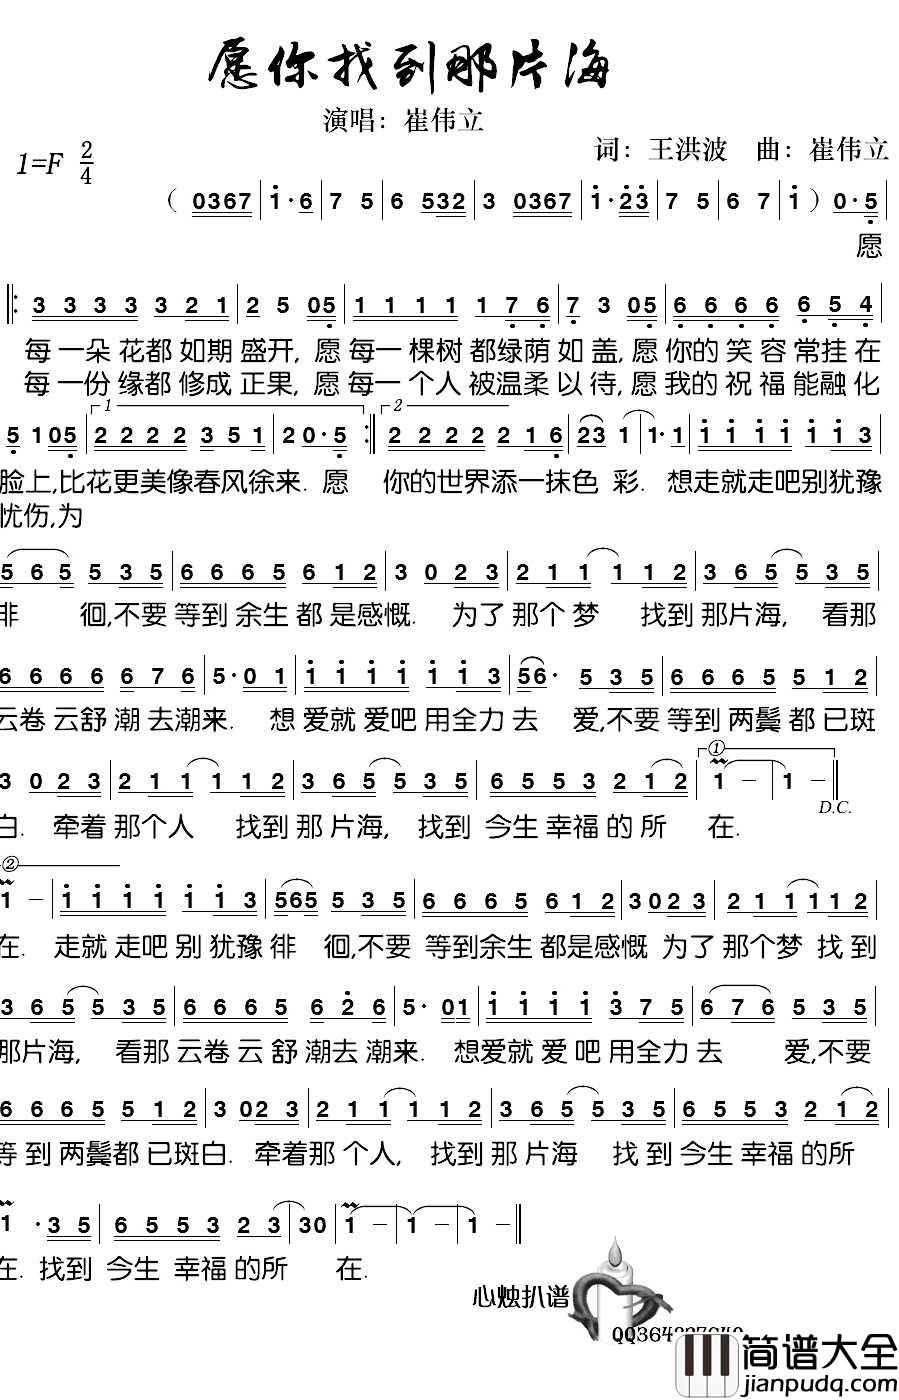 愿你找到那片海
演唱：崔伟立
1=F 2/4
词：王洪波 曲：崔伟立
（0367 | 1·6 | 7 5 | 6 532 | 3 0367 | 1·23 | 7 5 | 6 7 | 1 ）0·5
愿
3 3 3 3 3 2 1 | 2 5 05 | 1 1 1 1 1 7 6 | 7 3 05 | 6 6 6 6 6 5 4
每一朵花都如期盛开,愿每一棵树都绿荫如盖,愿你的笑容常挂在
每一份缘都修成正果,愿每一个人被温柔以待,愿我的祝福能融化
1 2
5 1 05 | 2 2 2 2 3 5 1 | 2 0·5 :| 2 2 2 2 2 1 6 | 23 1 | 1· 1 | 1 1 1 1 1 1 3
脸上,比花更美像春风徐来.愿 你的世界添一抹色彩.想走就走吧别犹豫
忧伤,为
5 6 5 5 3 5 | 6 6 6 5 6 1 2 | 3 0 2 3 | 2 1 1 1 1 2 | 3 6 5 5 3 5
徘 徊,不要等到余生都是感慨.为了那个梦 找到那片海, 看那
6 6 6 6 6 7 6 | 5·0 1 | 1 1 1 1 1 1 3 | 56· 5 3 5 | 6 6 6 5 5 1 2
云卷云舒潮去潮来. 想爱就爱吧用全力去 爱,不要等到两鬓都已斑
①
3 0 2 3 | 2 1 1 1 1 2 | 3 6 5 5 3 5 | 6 5 5 3 2 1 2 | 1 - | 1 - ‖
D.C.
白. 牵着那个人 找到那片海, 找到今生幸福的所 在.
②
1 - | 1 1 1 1 1 1 3 | 565 5 3 5 | 6 6 6 5 6 1 2 | 3 0 2 3 | 2 1 1 1 1 2
在. 走就走吧别犹豫徘 徊,不要等到余生都是感慨 为了那个梦找到
3 6 5 5 3 5 | 6 6 6 5 6 2 6 | 5· 01 | 1 1 1 1 3 7 5 | 6 7 6 5 3 5
那片海, 看那云卷云舒潮去潮来. 想爱就爱吧用全力去 爱,不要
6 6 6 5 5 1 2 | 3 0 2 3 | 2 1 1 1 1 2 | 3 6 5 5 3 5 | 6 5 5 3 2 1 2
等到两鬓都已斑白. 牵着那个人, 找到那片海 找到今生幸福的所
1 · 3 5 | 6 5 5 3 2 3 | 3 0 | 1 - | 1 - | 1 - ‖
在. 找到今生幸福的所 在.
心烛扒谱
简谱大全
jianpudq.com